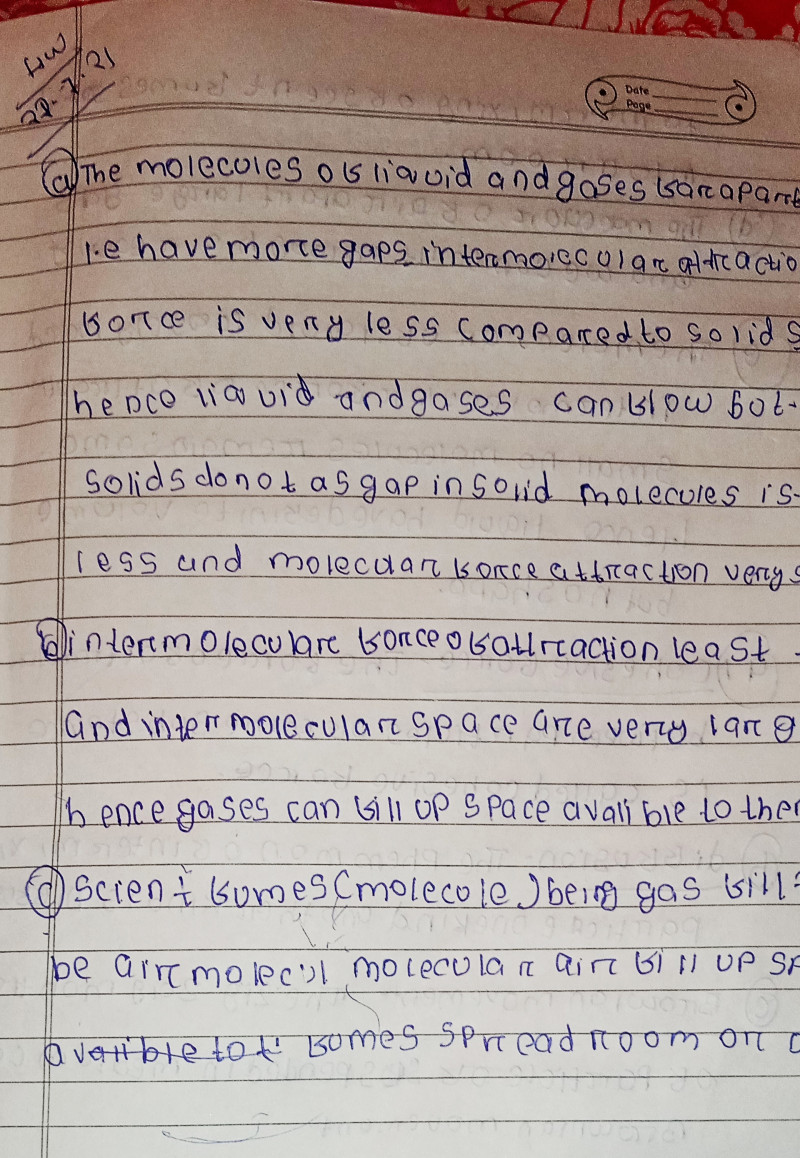 HW
28.7.21
Date
Page
(a) The molecules of liquid and gases far apart
i.e have more gaps intermolecular attractio
force is very less compared to solids
hence liquid and gases can flow but-
solids do not as gap in solid molecules is-
less and molecular force attraction very s
(b) intermolecular force of attraction least -
and intermolecular space are very larg
hence gases can fill up space avalible to them
(c) Scient fumes (molecole) being gas fill
be air molecul molecular air fill up sp
avalible to it fomes spread room or